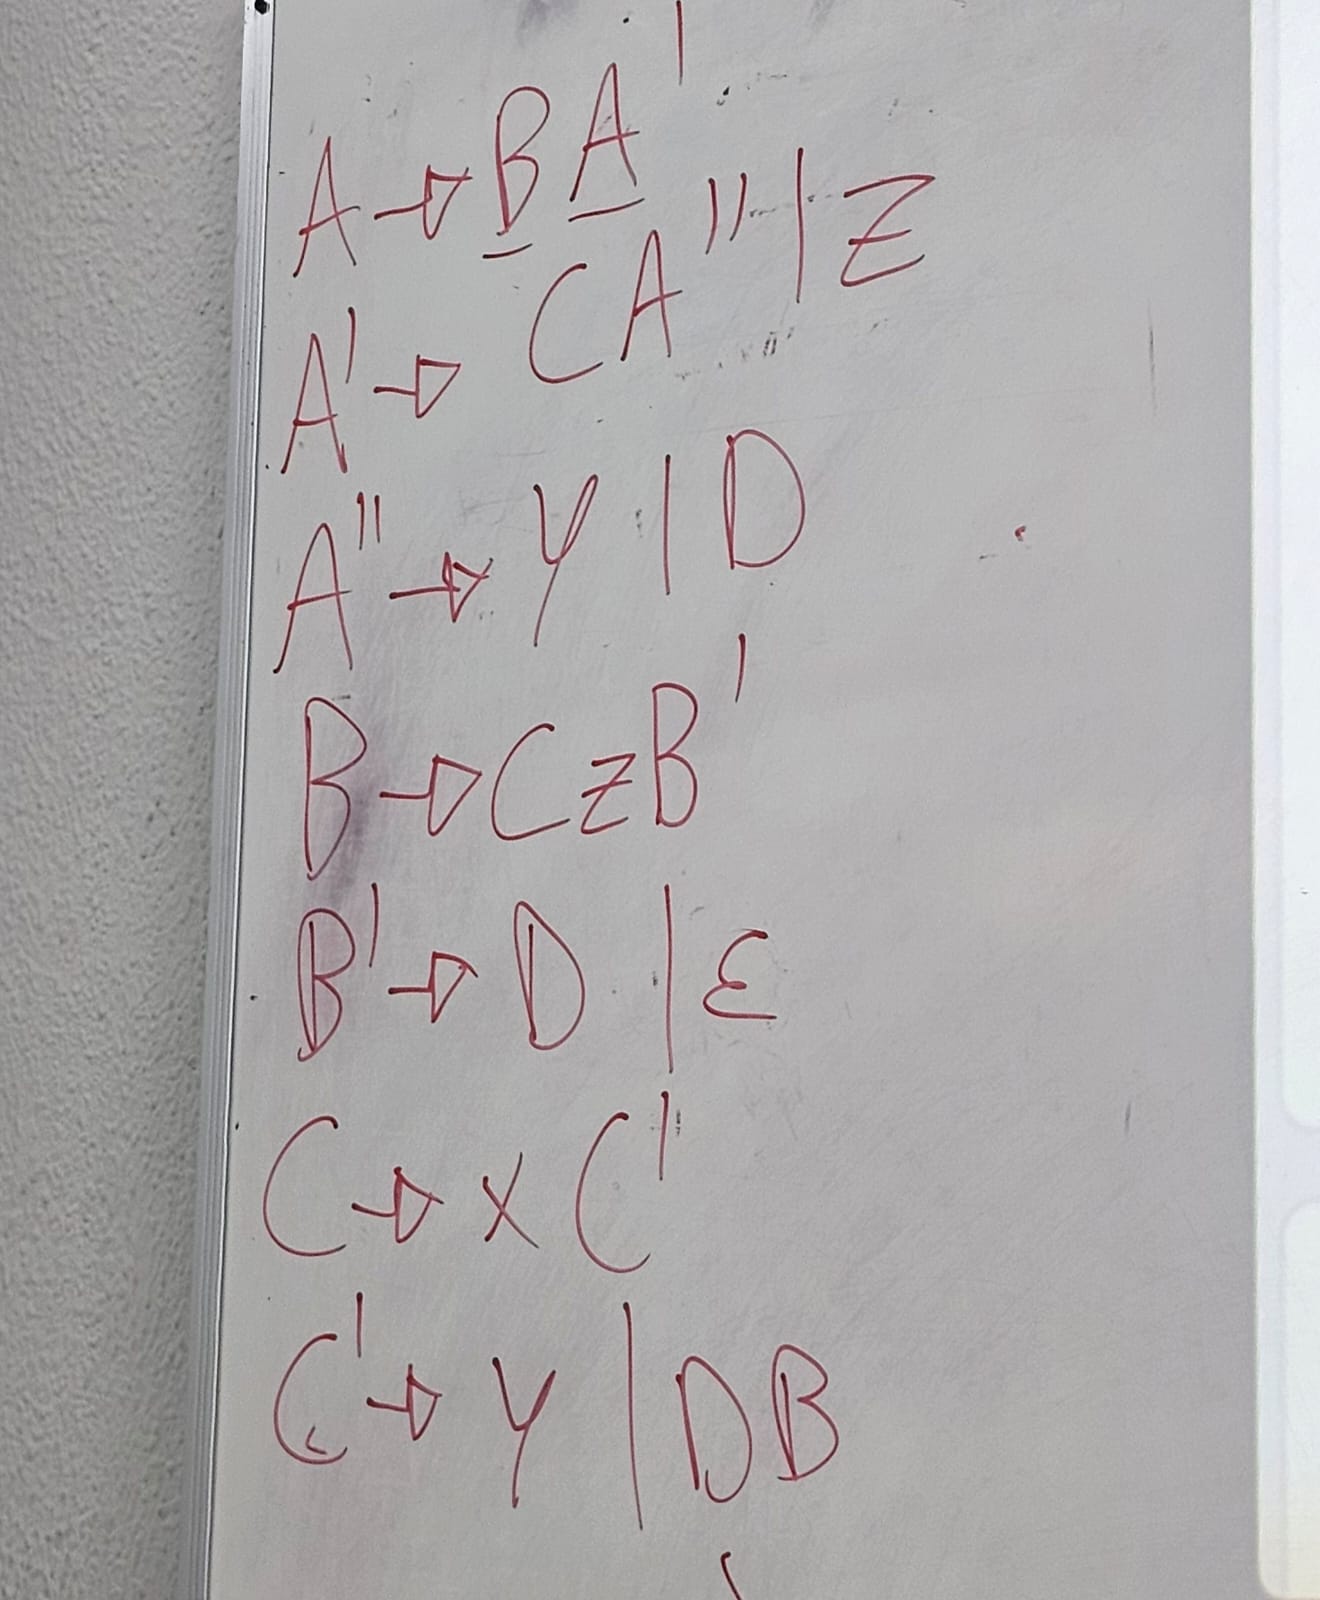 A → BA'
A' → CA'' | Z
A'' → Y | D
B → CzB'
B' → D | ε
C → xC'
C' → Y | DB